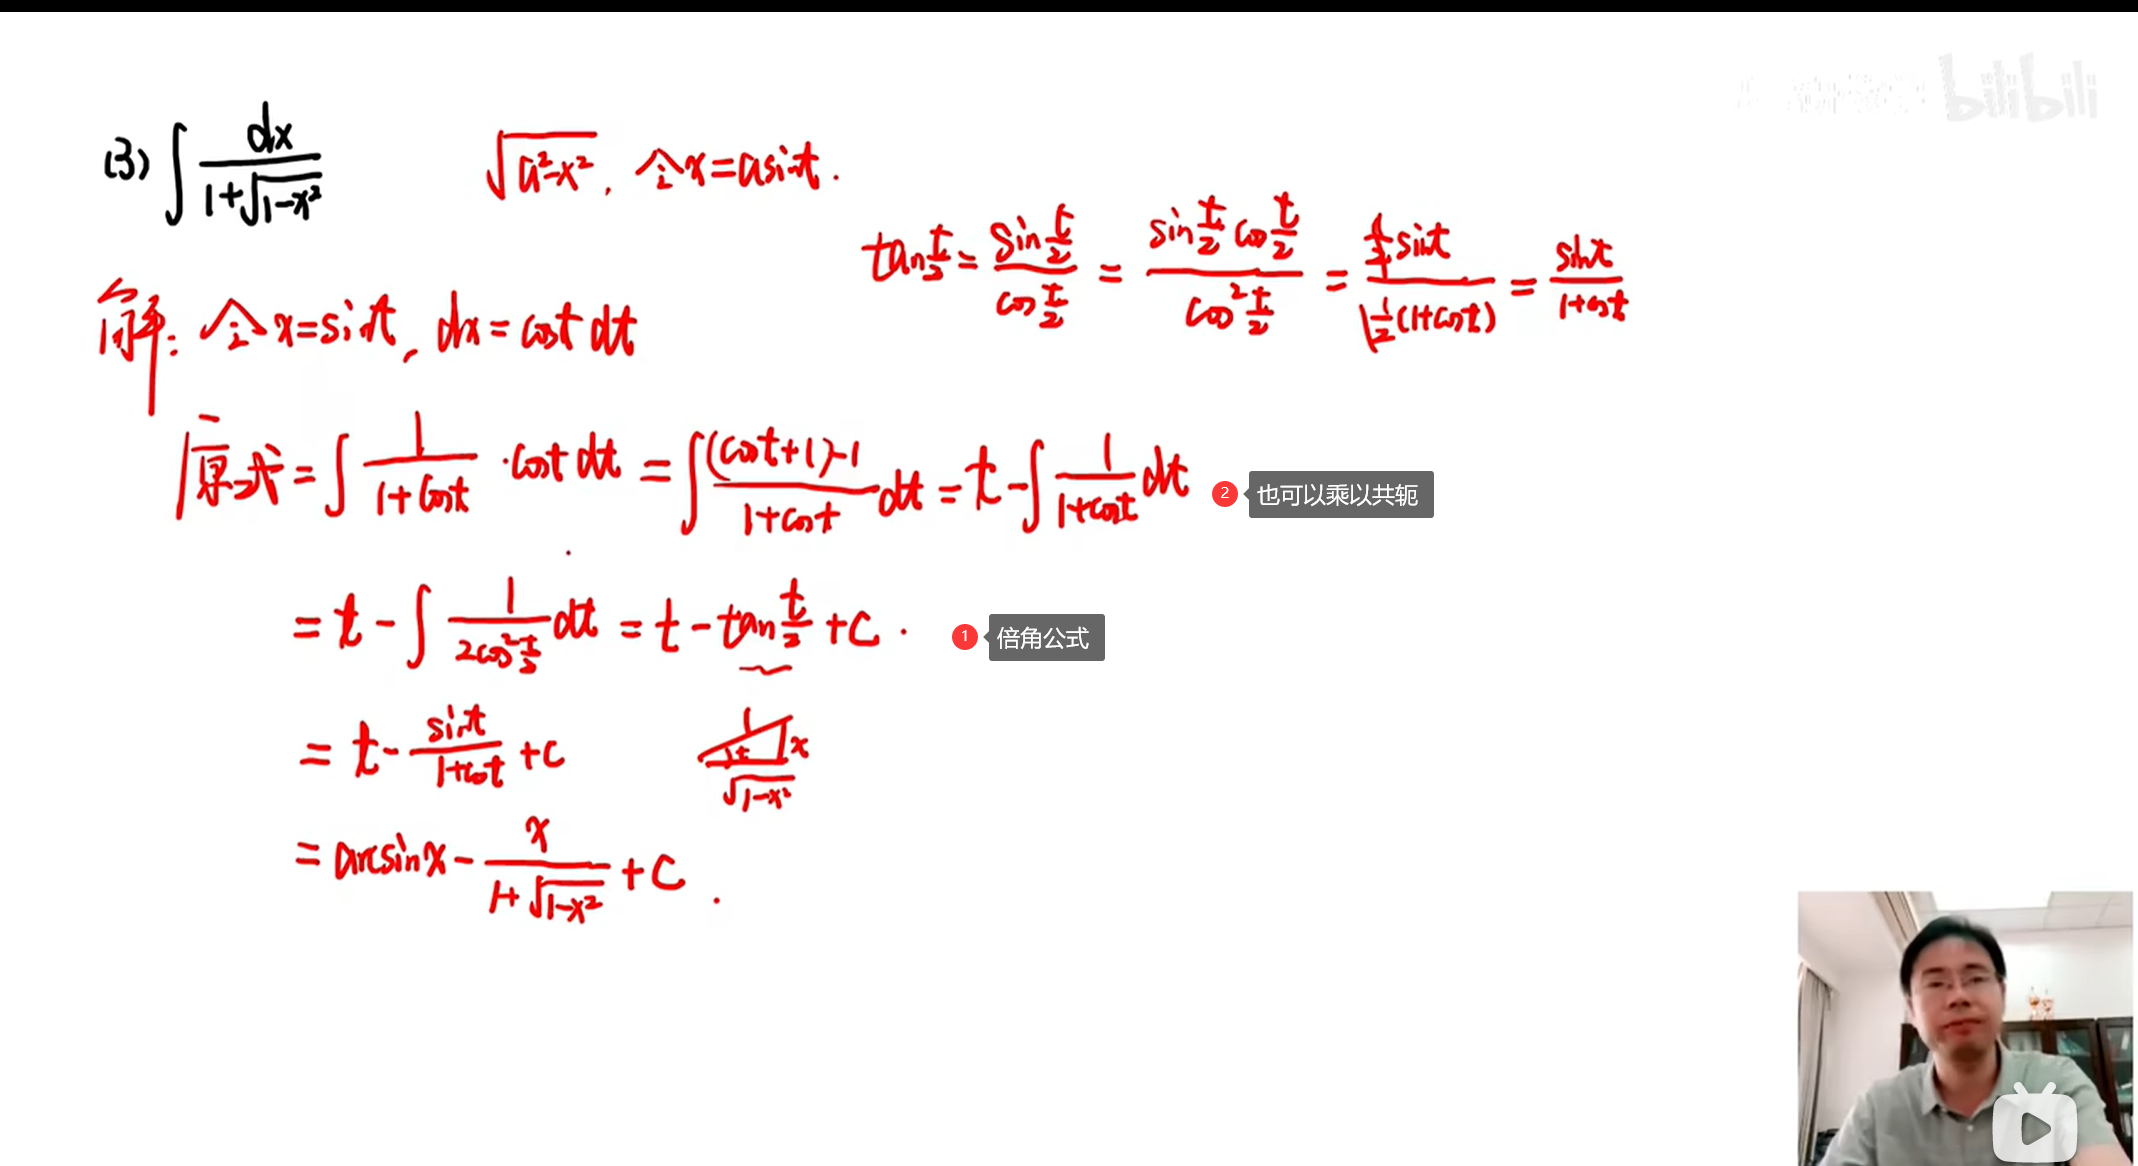 bilibili
(3) ∫ dx / (1+√(1-x²))
√(a²-x²), 令x=asint.
tan t/2 = sin t/2 / cos t/2 = sin t/2 cos t/2 / cos² t/2 = 1/2 sint / 1/2 (1+cost) = sint / (1+cost)
解: 令x=sint, dx=cost dt
原式= ∫ 1/(1+cost) · cost dt = ∫ ((cost+1)-1)/(1+cost) dt = t - ∫ 1/(1+cost) dt
2 也可以乘以共轭
= t - ∫ 1/(2cos² t/2) dt = t - tan t/2 + C.
1 倍角公式
= t - sint/(1+cost) + C
1 t x √(1-x²)
= arcsinx - x/(1+√(1-x²)) + C.